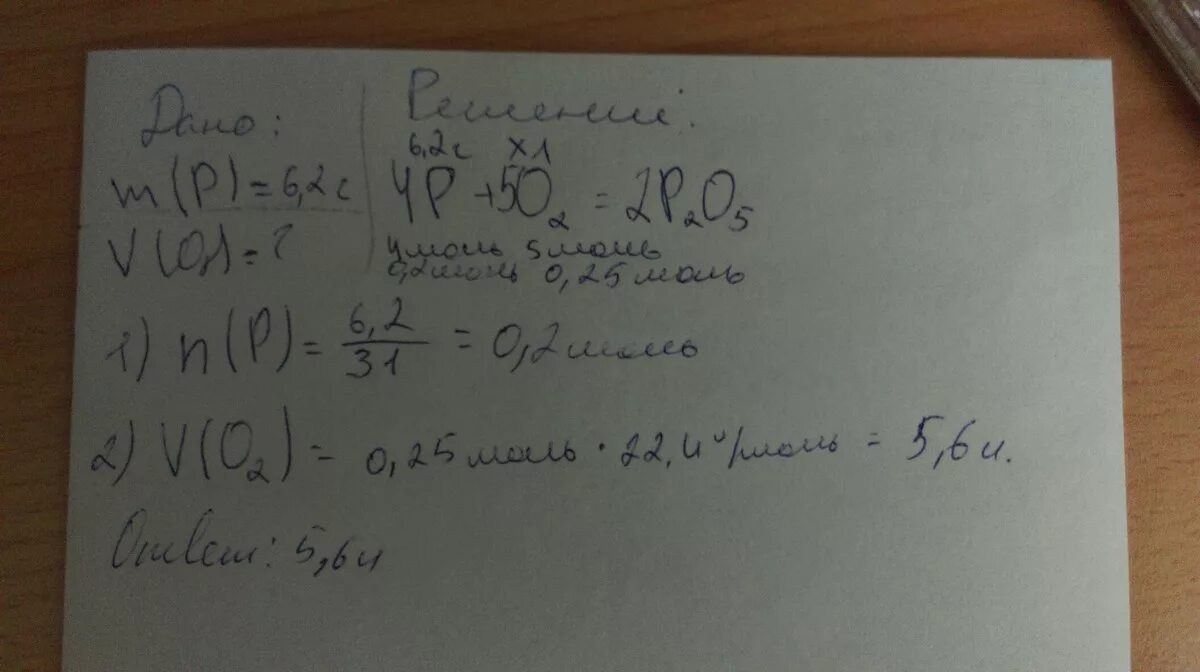 Дано:
m(P)=6,2г
V(O₂)=?
Решение:
6,2г х л
4P+5O₂=2P₂O₅
4моль 5моль
0,2моль 0,25моль
1) n(P)=6,2/31=0,2моль
2) V(O₂)=0,25моль·22,4л/моль=5,6л.
Ответ: 5,6л